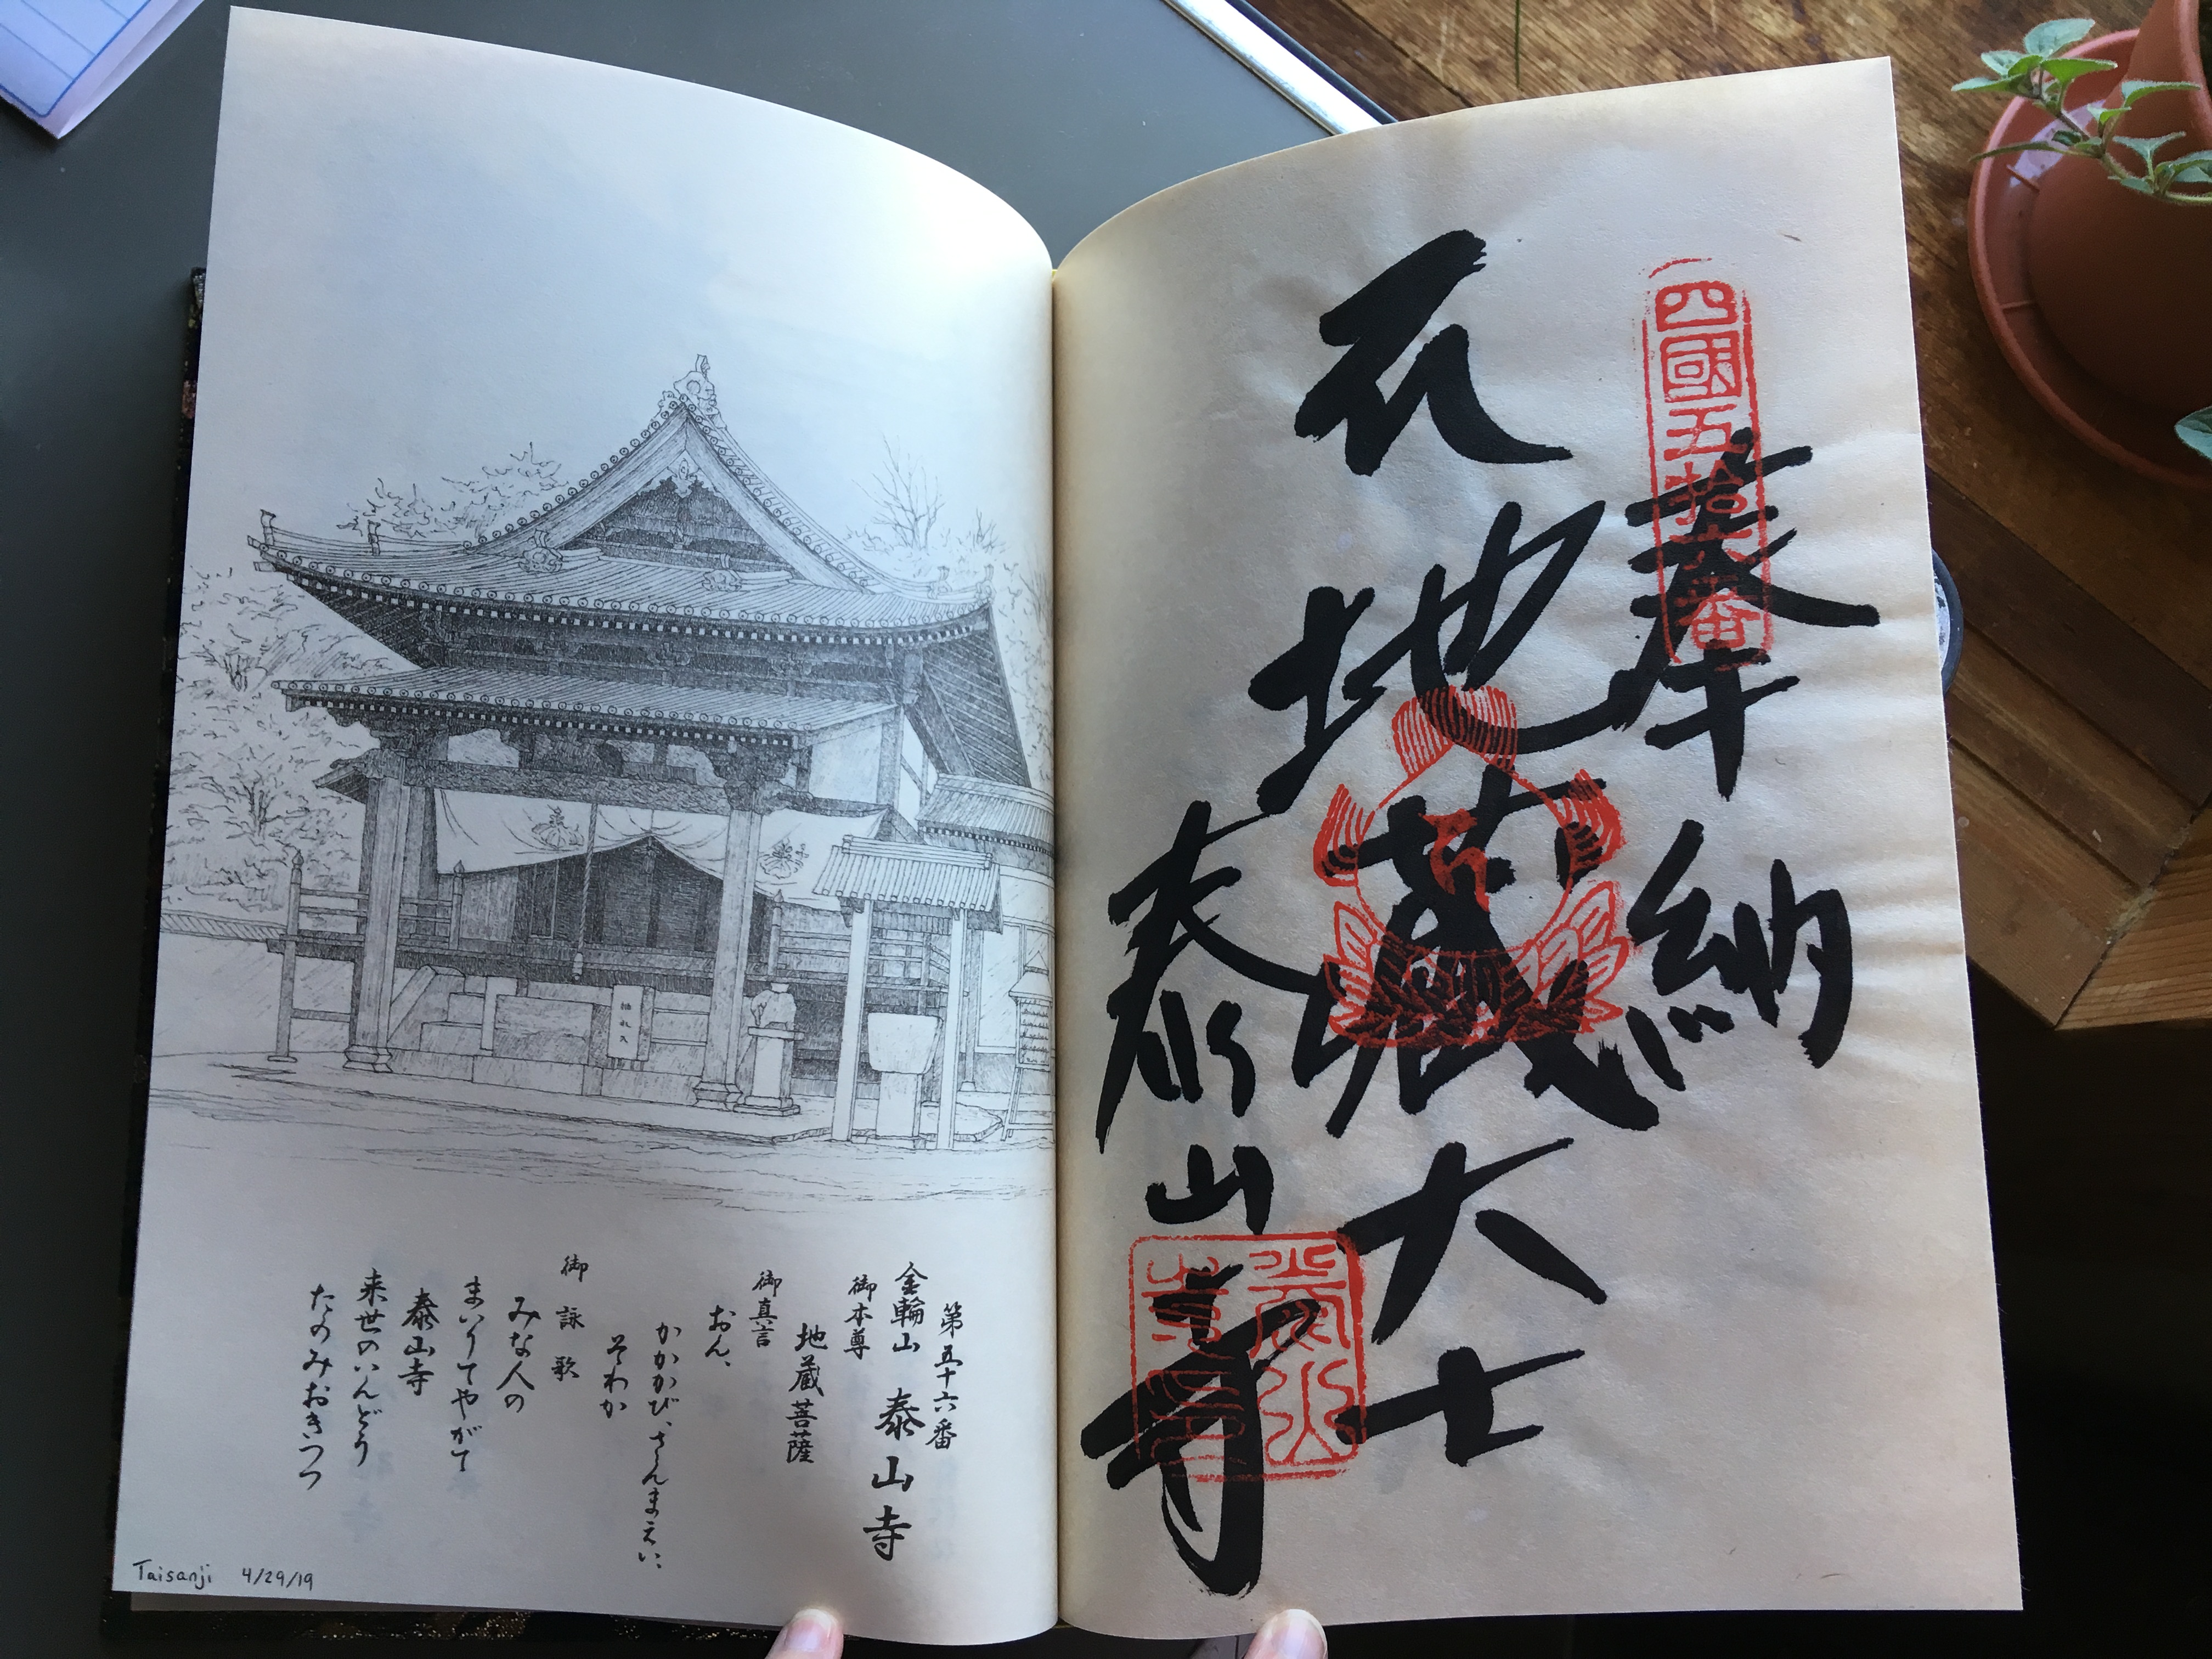 四國五拾六番
奉納
地蔵大士
泰山寺
納札入
第五十六番
金輪山 泰山寺
御本尊
地蔵菩薩
御真言
おん、
かかかび、さんまえい、
そわか
御詠歌
みな人の
まいりてやがて
泰山寺
来世のいんどう
たのみおきつつ
Taisanji 4/29/19